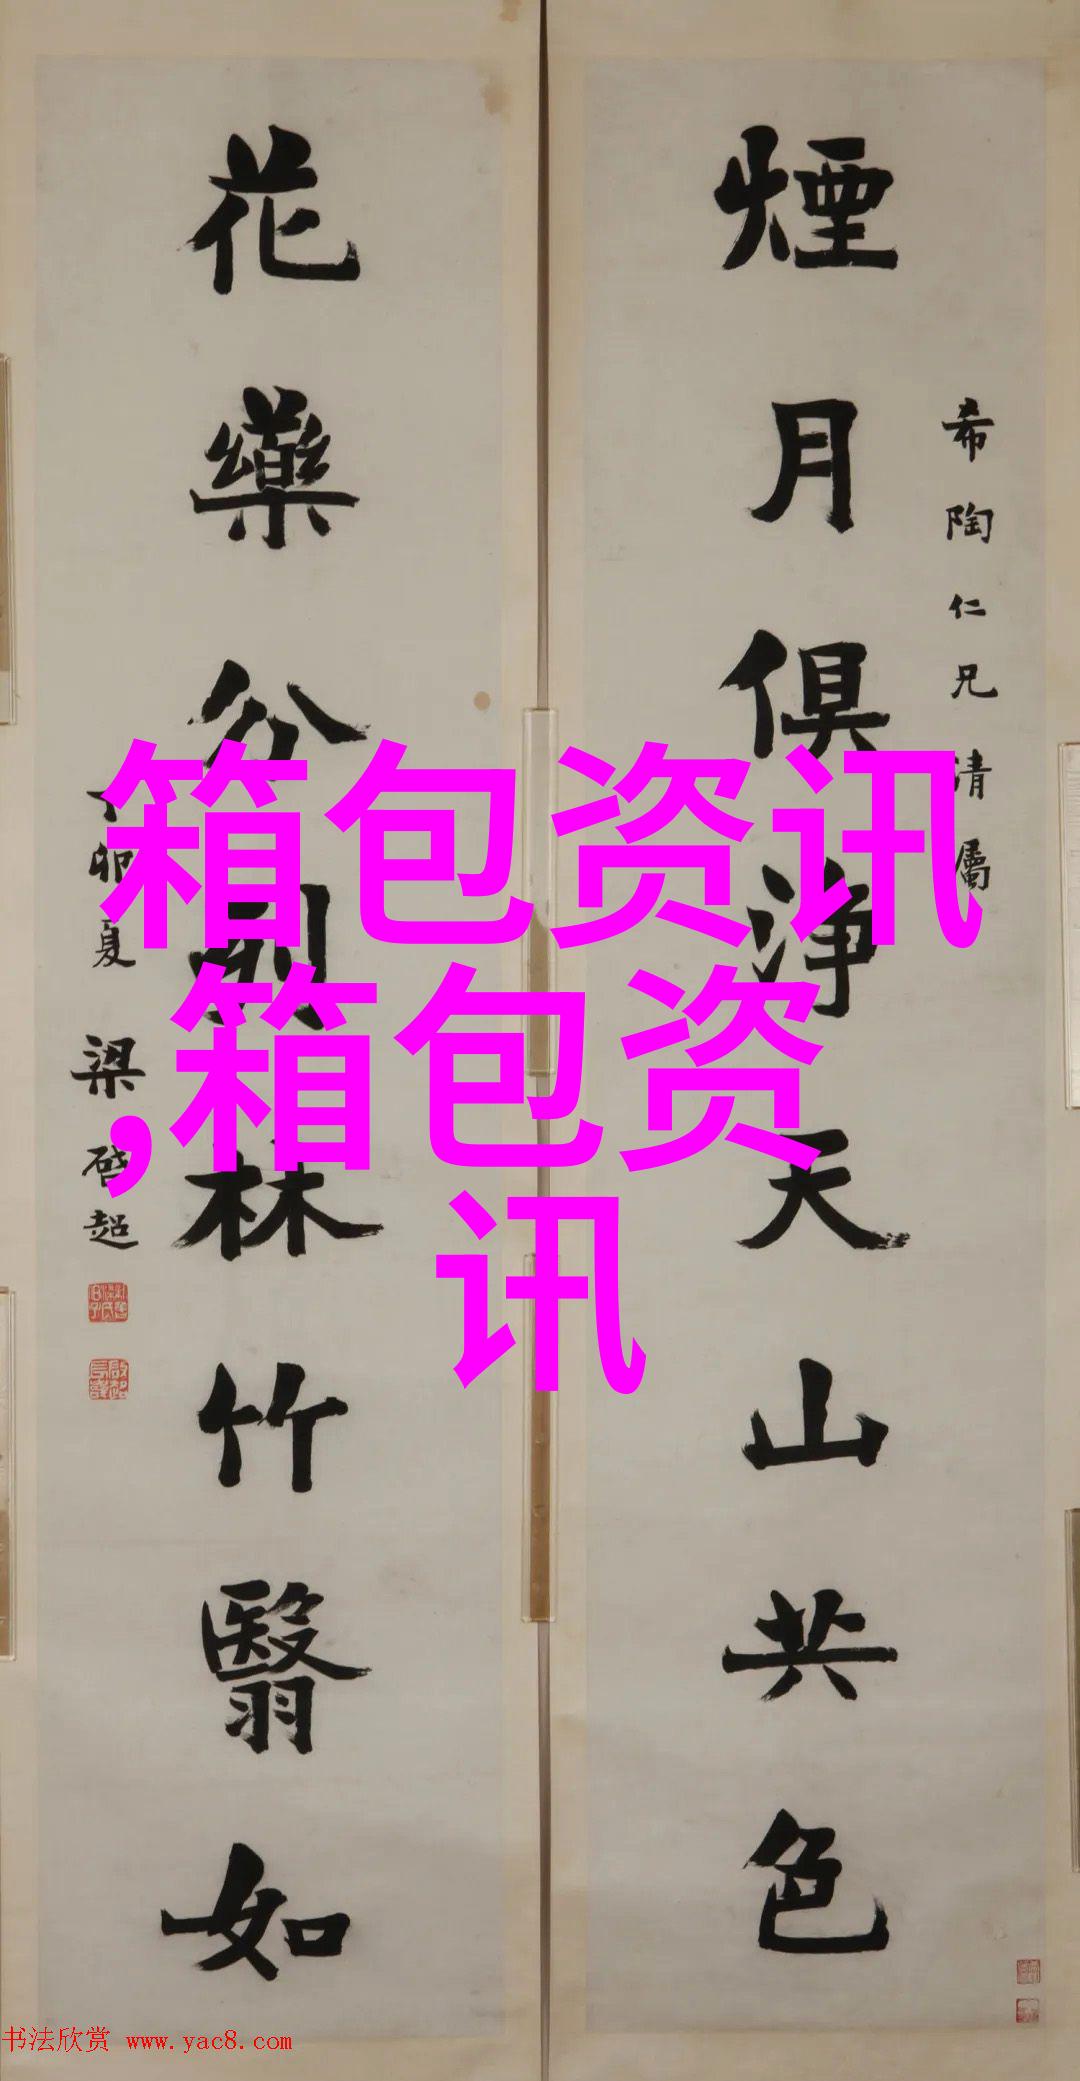 煙月俱净天山共色
希陶仁兄清屬
花藥分列林竹翳如
丁卯夏 梁啓超
箱包资讯
,箱包资
讯
书法欣赏 www.yac8.com